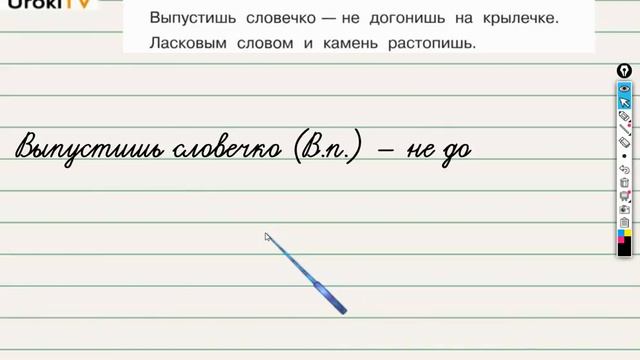 UrokiTV
Выпустишь словечко — не догонишь на крылечке.
Ласковым словом и камень растопишь.
Выпустишь словечко (В.п.) – не до